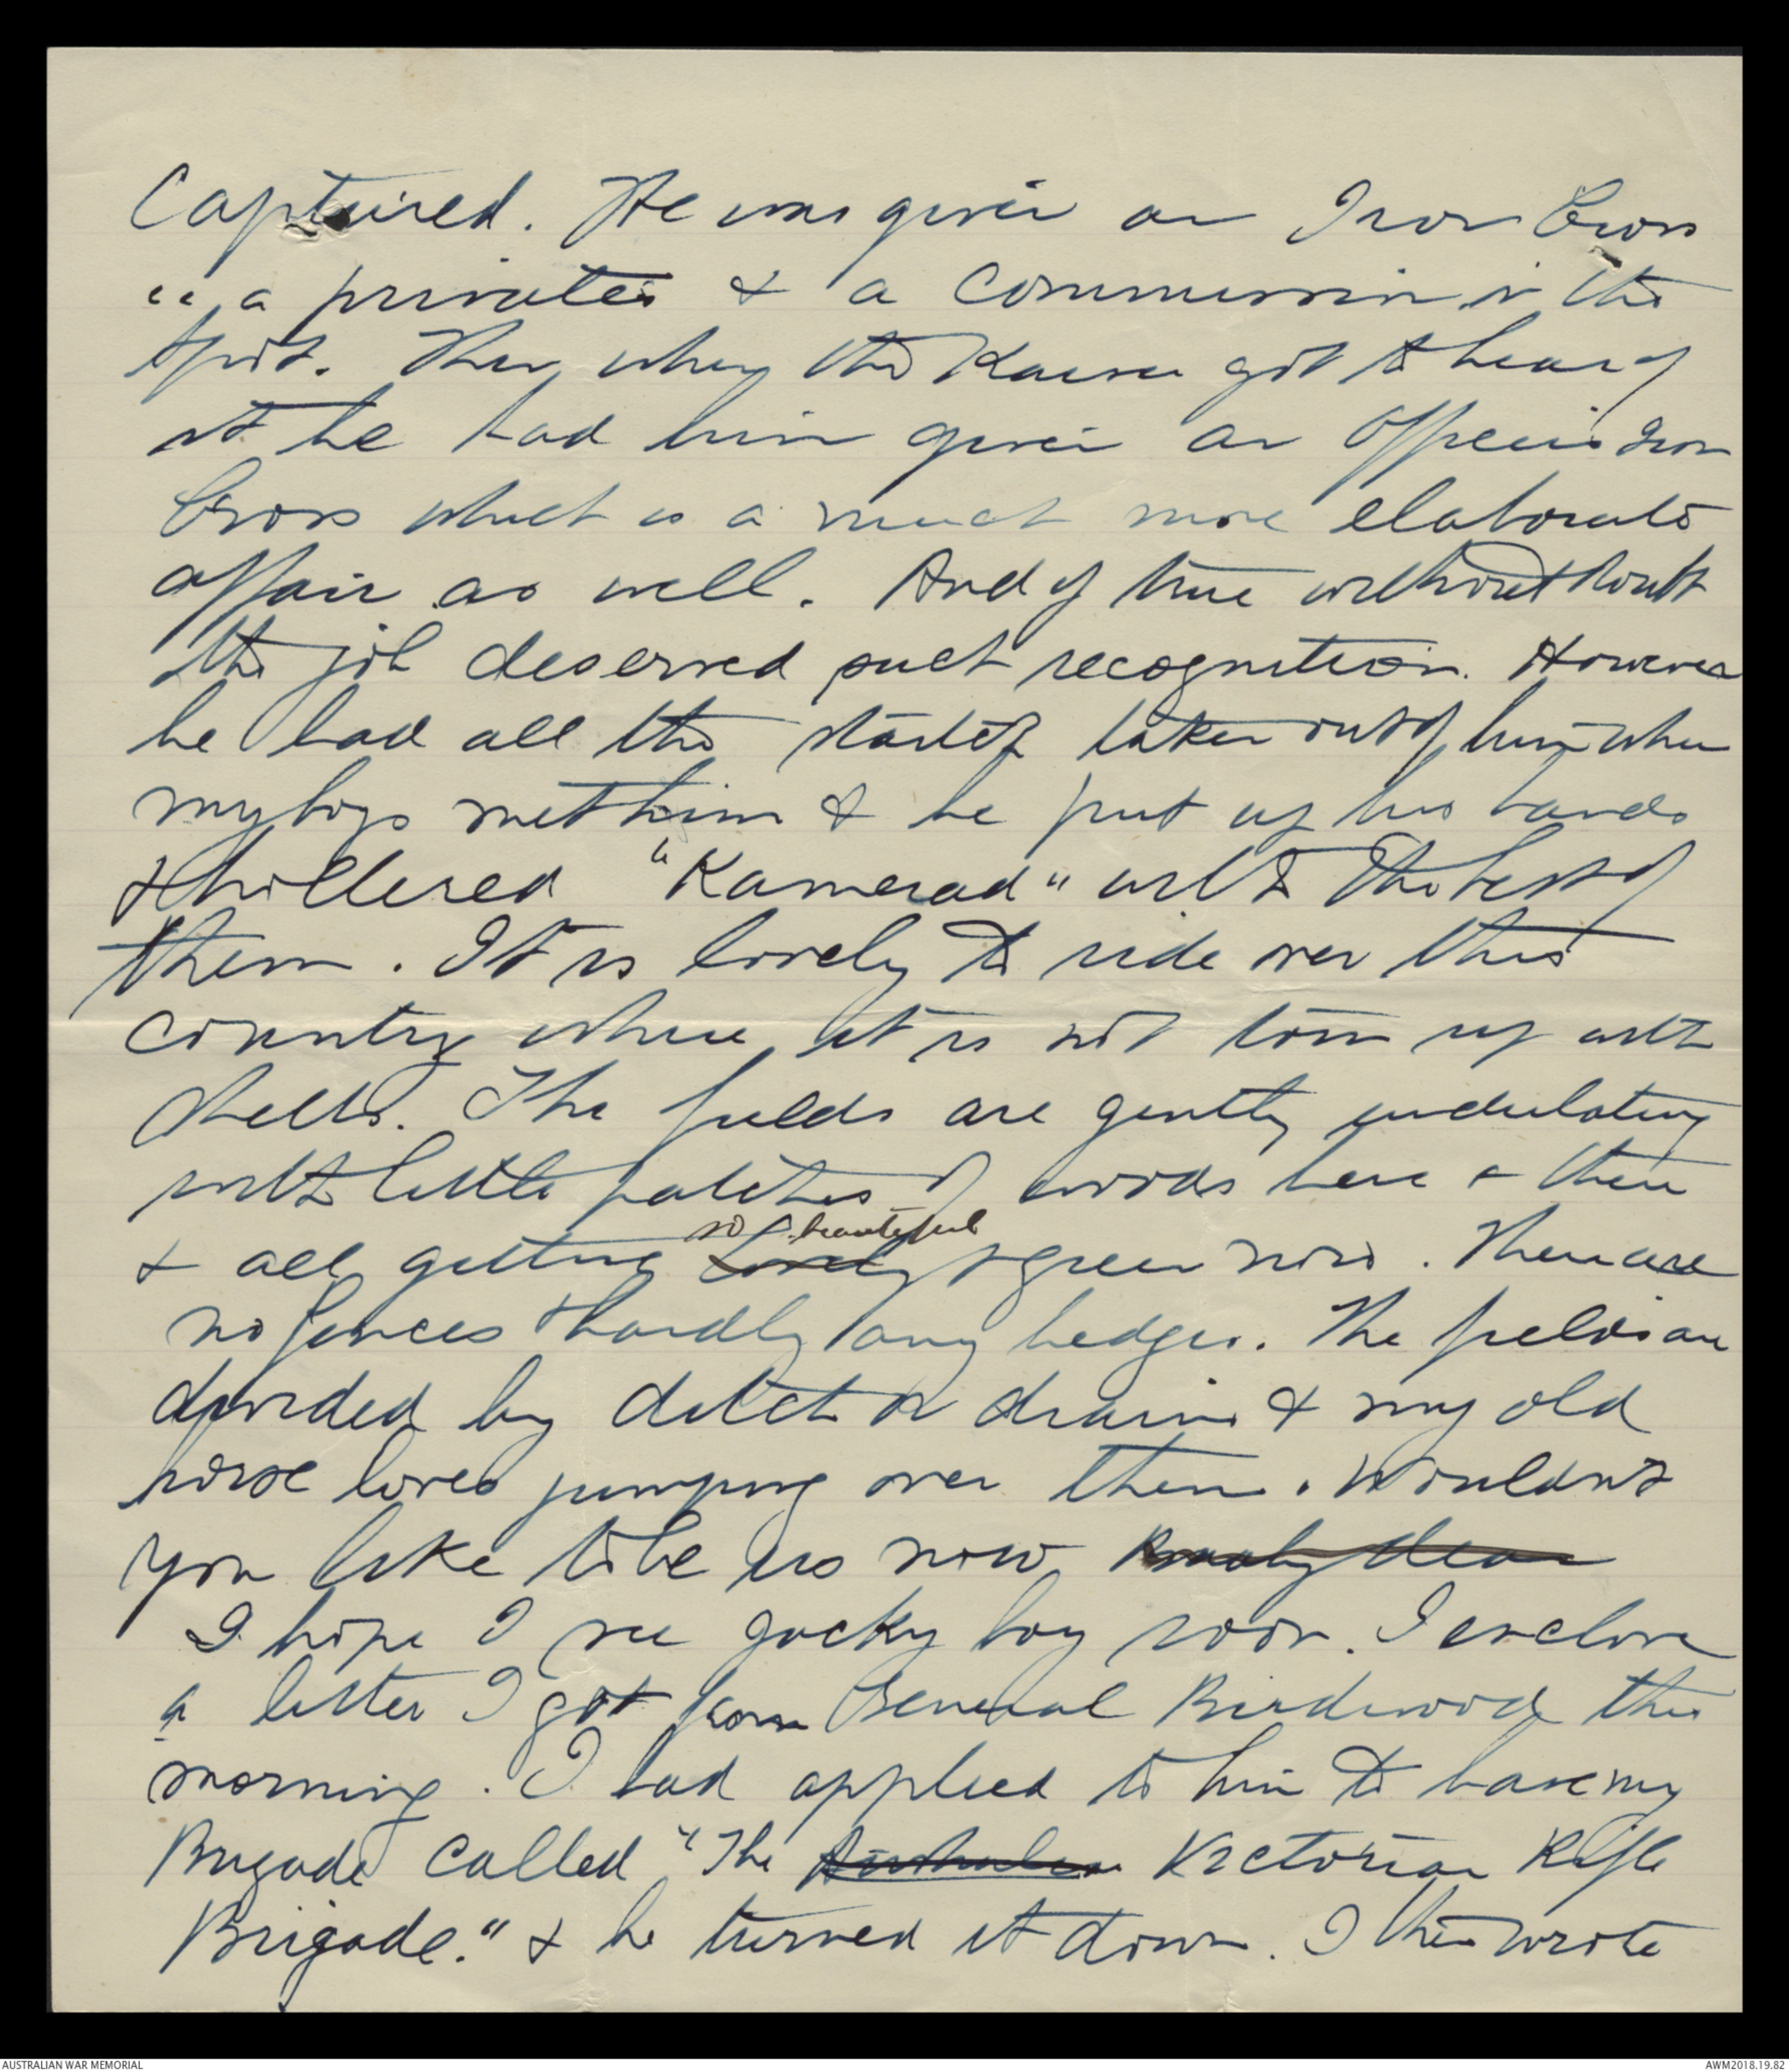 Captured. He was given an Iron Cross
"a privates & a Commission on the
spot. Then when the Kaiser got to hear of
it he had him given an Officers Iron
Cross which is a much more elaborate
affair as well. And if true without doubt
the job deserved such recognition. However
he had all the starch taken out of him when
my boys met him & he put up his hands
& hollered "Kamerad" with the best of
them. It is lovely to ride over this
country where it is not torn up with
shells. The fields are gently undulating
with little patches of woods here & there
& all getting lovely so beautiful & green now. There are
no fences & hardly any hedges. The fields are
divided by ditch or drains & my old
horse loves jumping over them. Wouldn't
you like to be us now dear
I hope I see Jacky boy soon. I enclose
a letter I got from General Birdwood this
morning. I had applied to him to have my
Brigade called "The Australian Victorian Rifle
Brigade." & he turned it down. I then wrote
AUSTRALIAN WAR MEMORIAL
AWM2018.19.82